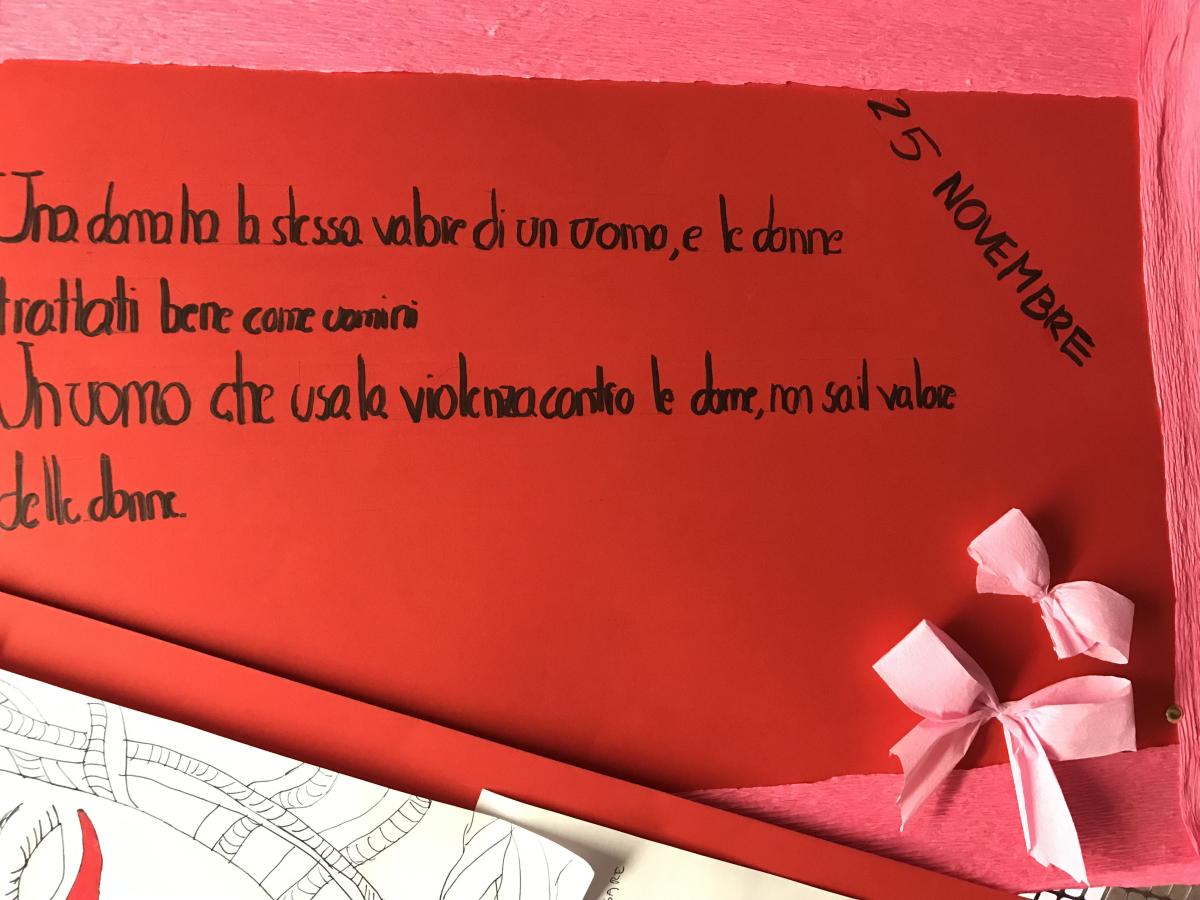 25 NOVEMBRE
Una donna ha la stessa valore di un uomo, e le donne
trattati bene come uomini
Un uomo che usa la violenza contro le donne, non sa il valore
delle donne.